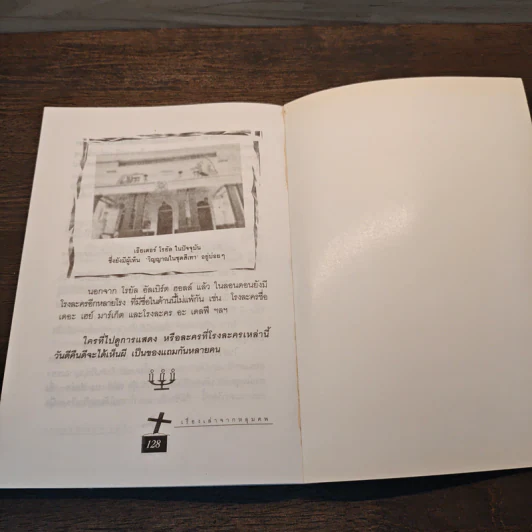 เธียเตอร์ โรยัล ในปัจจุบัน
ซึ่งยังมีผู้เห็น 'วิญญาณในชุดสีเทา' อยู่บ่อยๆ
นอกจาก โรยัล อัลเบิร์ต ฮอลล์ แล้ว ในลอนดอนยังมี
โรงละครอีกหลายโรง ที่มีชื่อในด้านนี้ไม่แพ้กัน เช่น โรงละครชื่อ
เดอะ เฮย์ มาร์เก็ต และโรงละคร อะ เดลฟี ฯลฯ
ใครที่ไปดูการแสดง หรือละครที่โรงละครเหล่านี้
วันดีคืนดีจะได้เห็นผี เป็นของแถมกันหลายคน
เรื่องเล่าจากหลุมศพ
128